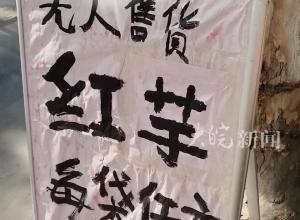 无人售货
红芋
每袋
大皖新闻